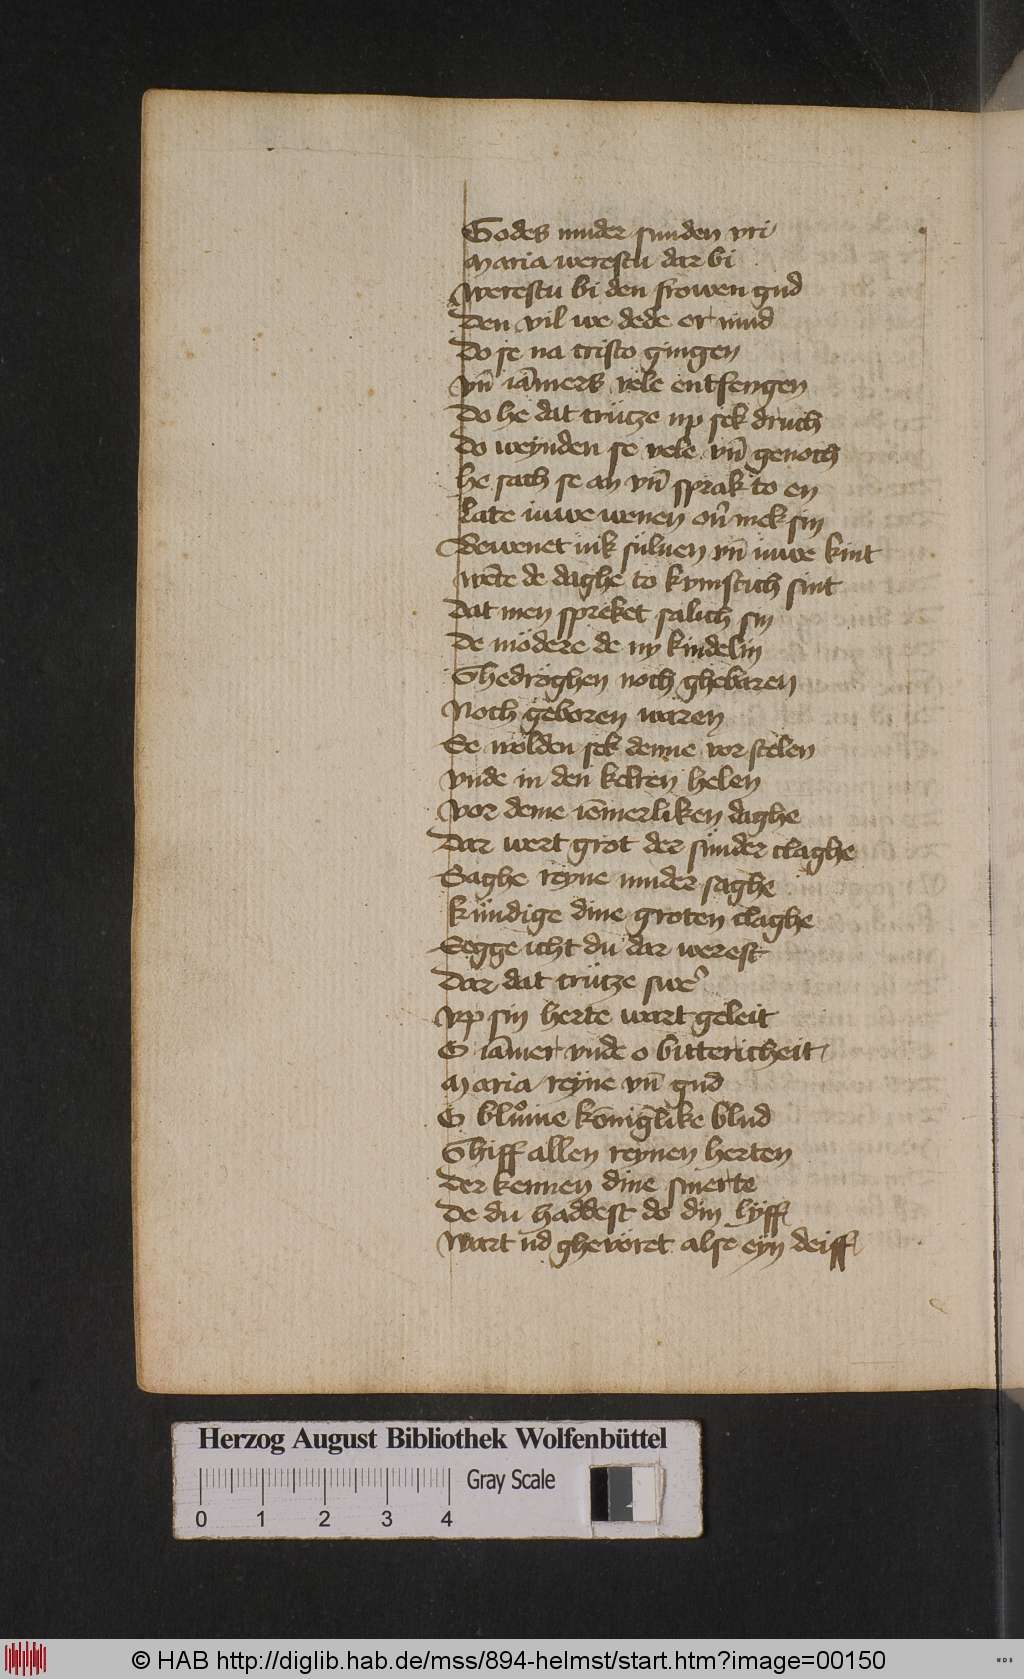 Godes muder sunden vri
Maria werestu dar bi
Werestu bi den frowen gud
Den vil we dede er mud
Do se na cristo gingen
Vn̄ iām̄ers vele entfengen
Do he dat crütze up sek druch
Do weynden se vele vn̄ genoch
he sach se an vn̄ sprak to en
Late iuwe wenen ouͤ mek sin
Bewenet iuk suluen vn̄ iuwe kint
Wēte de daghe to kvmstich sint
Dat men spreket salich sin
De mödere de ny kindelin
Ghedröghen noch ghebaren
Noch geboren waren
Se wolden sek denne vor stelen
Vnde in den kelren helen
Vor deme iēmerliken daghe
Dar wert grot der sunder claghe
Saghe reyne muder saghe
kündige dine groten claghe
Segge icht du dar werest
Dar dat crütze swer̄
Vp sin herte wart geleit
O iām̄er vnde o bittericheit
Maria reyne vn̄ gud
O blůme kōniḡlike blud
Ghiff allen reynen herten
Der kennen dine smerte
De du haddest do din lyff
Wart ud ghevöret alse eyn deiff
Herzog August Bibliothek Wolfenbüttel
Gray Scale
0 1 2 3 4
© HAB http://diglib.hab.de/mss/894-helmst/start.htm?image=00150